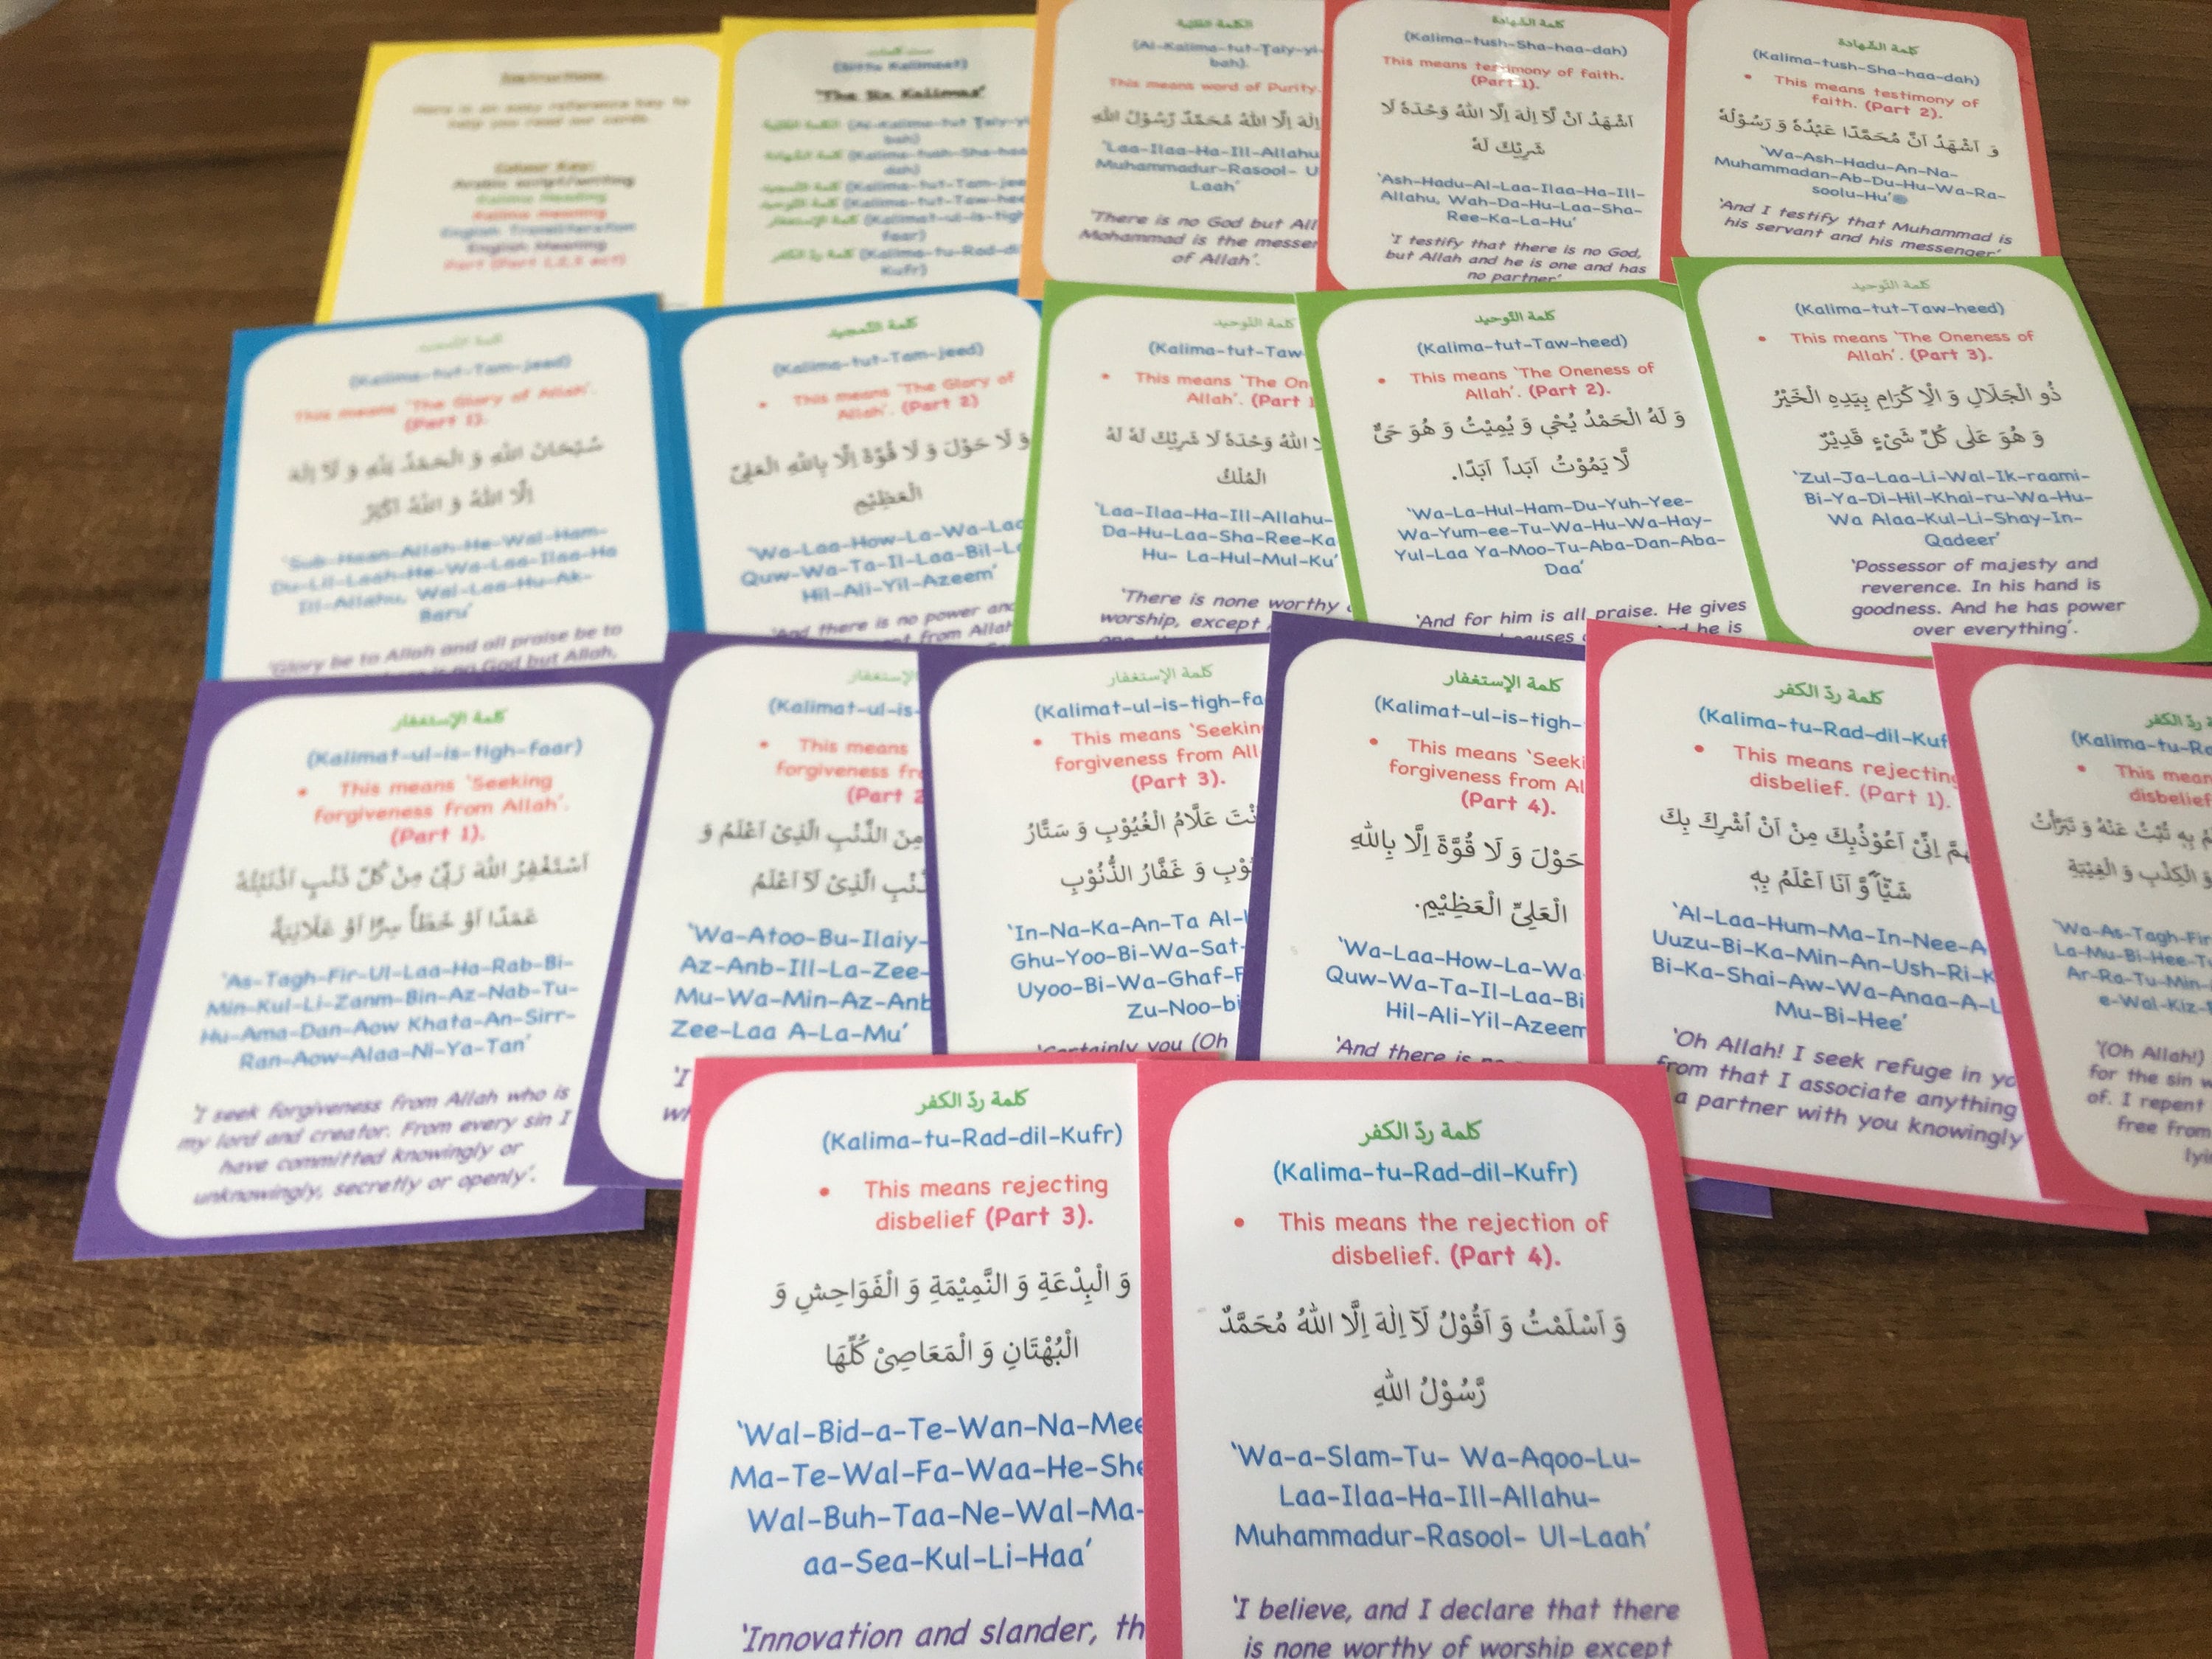 Instructions.
Here is an easy reference key to
help you read our cards.
Colour Key:
Arabic script/writing
Kalima Heading
Kalima Meaning
English Transliteration
English Meaning
Part (Part 1,2,3 ect)
(Sitta Kalimaat)
'The Six Kalimas'
الكلمة الطّيّبة
(Al-Kalima-tut-Taiy-yi-
bah).
This means word of Purity.
اِلٰهَ اِلَّا اللهُ مُحَمَّدٌ رَّسُوْلُ اللهِ
'Laa-Ilaa-Ha-Ill-Allahu
Muhammadur-Rasool- U
Laah'
'There is no God but All
Mohammad is the messen
of Allah'.
كلمة الشّهادة
(Kalima-tush-Sha-haa-dah)
This means testimony of faith.
(Part 1).
اَشْهَدُ اَنْ لَّآ اِلٰهَ اِلَّا اللهُ وَحْدَهٗ لَا
شَرِيْكَ لَهٗ
'Ash-Hadu-Al-Laa-Ilaa-Ha-Ill-
Allahu, Wah-Da-Hu-Laa-Sha-
Ree-Ka-La-Hu'
'I testify that there is no God,
but Allah and he is one and has
no partner'
كلمة الشّهادة
(Kalima-tush-Sha-haa-dah)
• This means testimony of
faith. (Part 2).
وَ اَشْهَدُ اَنَّ مُحَمَّدًا عَبْدُهٗ وَ رَسُوْلُهٗ
'Wa-Ash-Hadu-An-Na-
Muhammadan-Ab-Du-Hu-Wa-Ra-
soolu-Hu'
'And I testify that Muhammad is
his servant and his messenger'
كلمة التّمجيد
(Kalima-tut-Tam-jeed)
This means 'The Glory of Allah'.
(Part 1).
سُبْحَانَ اللهِ وَ الْحَمْدُ لِلّٰهِ وَ لَآ اِلٰهَ
اِلَّا اللهُ وَ اللهُ اَكْبَرُ
'Sub-Haan-Allah-He-Wal-Ham-
Du-Lil-Laah-He-Wa-Laa-Ilaa-Ha
Ill-Allahu, Wal-Laa-Hu-Ak-
Baru'
'Glory be to Allah and all praise be to
is no God but Allah,
كلمة التّمجيد
(Kalima-tut-Tam-jeed)
• This means 'The Glory of
Allah'. (Part 2)
وَ لَا حَوْلَ وَ لَا قُوَّةَ اِلَّا بِاللهِ الْعَلِيِّ
الْعَظِيْمِ
'Wa-Laa-How-La-Wa-Laa
Quw-Wa-Ta-Il-Laa-Bil-La
Hil-Ali-Yil-Azeem'
'And there is no power and
from Allah
كلمة التّوحيد
(Kalima-tut-Taw-
• This means 'The On
Allah'. (Part 1
اللهُ وَحْدَهٗ لَا شَرِيْكَ لَهٗ لَهُ
الْمُلْكُ
'Laa-Ilaa-Ha-Ill-Allahu-
Da-Hu-Laa-Sha-Ree-Ka
Hu- La-Hul-Mul-Ku'
'There is none worthy
worship, except
كلمة التّوحيد
(Kalima-tut-Taw-heed)
• This means 'The Oneness of
Allah'. (Part 2).
وَ لَهُ الْحَمْدُ يُحْيٖ وَ يُمِيْتُ وَ هُوَ حَيٌّ
لَّا يَمُوْتُ اَبَداً اَبَدًا.
'Wa-La-Hul-Ham-Du-Yuh-Yee-
Wa-Yum-ee-Tu-Wa-Hu-Wa-Hay-
Yul-Laa Ya-Moo-Tu-Aba-Dan-Aba-
Daa'
'And for him is all praise. He gives
he is
كلمة التّوحيد
(Kalima-tut-Taw-heed)
• This means 'The Oneness of
Allah'. (Part 3).
ذُو الْجَلَالِ وَ الْاِكْرَامِ بِيَدِهِ الْخَيْرُ
وَ هُوَ عَلٰى كُلِّ شَىْءٍ قَدِيْرٌ
'Zul-Ja-Laa-Li-Wal-Ik-raami-
Bi-Ya-Di-Hil-Khai-ru-Wa-Hu-
Wa Alaa-Kul-Li-Shay-In-
Qadeer'
'Possessor of majesty and
reverence. In his hand is
goodness. And he has power
over everything'.
كلمة الإستغفار
(Kalimat-ul-is-tigh-faar)
• This means 'Seeking
forgiveness from Allah'.
(Part 1).
اَسْتَغْفِرُ اللهَ رَبِّىْ مِنْ كُلِّ ذَنْبٍ اَذْنَبْتُهٗ
عَمَدًا اَوْ خَطَأً سِرًّا اَوْ عَلَانِيَةً
'As-Tagh-Fir-Ul-Laa-Ha-Rab-Bi-
Min-Kul-Li-Zanm-Bin-Az-Nab-Tu-
Hu-Ama-Dan-Aow Khata-An-Sirr-
Ran-Aow-Alaa-Ni-Ya-Tan'
'I seek forgiveness from Allah who is
my lord and creator. From every sin I
have committed knowingly or
unknowingly, secretly or openly'.
(Kalimat-ul-is-
• This means
forgiveness fr
(Part 2
مِنَ الذَّنْبِ الَّذِىْ اَعْلَمُ وَ
الَّذِىْ لَآ اَعْلَمُ
'Wa-Atoo-Bu-Ilaiy-
Az-Anb-Ill-La-Zee-
Mu-Wa-Min-Az-Anb
Zee-Laa A-La-Mu'
'I
كلمة الإستغفار
(Kalimat-ul-is-tigh-fa
• This means 'Seeking
forgiveness from All
(Part 3).
عَلَّامُ الْغُيُوْبِ وَ سَتَّارُ
وَ غَفَّارُ الذُّنُوْبِ
'In-Na-Ka-An-Ta Al-
Ghu-Yoo-Bi-Wa-Sat-
Uyoo-Bi-Wa-Ghaf-F
Zu-Noo-bi
'Certainly you (Oh
كلمة الإستغفار
(Kalimat-ul-is-tigh-
• This means 'Seeki
forgiveness from Al
(Part 4).
حَوْلَ وَ لَا قُوَّةَ اِلَّا بِاللهِ
الْعَلِيِّ الْعَظِيْمِ.
'Wa-Laa-How-La-Wa
Quw-Wa-Ta-Il-Laa-Bi
Hil-Ali-Yil-Azeem
'And there is
كلمة ردّ الكفر
(Kalima-tu-Rad-dil-Kuf
• This means rejecting
disbelief. (Part 1).
اِنِّىْ اَعُوْذُبِكَ مِنْ اَنْ اُشْرِكَ بِكَ
شَيْأً وَّ اَنَا اَعْلَمُ بِهٖ
'Al-Laa-Hum-Ma-In-Nee-A
Uuzu-Bi-Ka-Min-An-Ush-Ri-K
Bi-Ka-Shai-Aw-Wa-Anaa-A-L
Mu-Bi-Hee'
'Oh Allah! I seek refuge in yo
from that I associate anything
a partner with you knowingly
ردّ الكفر
(Kalima-tu-Ra
• This mean
disbelief
بِهٖ تُبْتُ عَنْهُ وَ تَبَرَّأْتُ
وَ الْكِذْبِ وَ الْغِيْبَةِ
'Wa-As-Tagh-Fir
La-Mu-Bi-Hee-Tu
Ar-Ra-Tu-Min-
e-Wal-Kiz-
'(Oh Allah!)
for the sin w
of. I repent
free from
lyi
كلمة ردّ الكفر
(Kalima-tu-Rad-dil-Kufr)
• This means rejecting
disbelief (Part 3).
وَ الْبِدْعَةِ وَ النَّمِيْمَةِ وَ الْفَوَاحِشِ وَ
الْبُهْتَانِ وَ الْمَعَاصِىْ كُلِّهَا
'Wal-Bid-a-Te-Wan-Na-Mee
Ma-Te-Wal-Fa-Waa-He-She
Wal-Buh-Taa-Ne-Wal-Ma-
aa-Sea-Kul-Li-Haa'
'Innovation and slander, th
كلمة ردّ الكفر
(Kalima-tu-Rad-dil-Kufr)
• This means the rejection of
disbelief. (Part 4).
وَ اَسْلَمْتُ وَ اَقُوْلُ لَآ اِلٰهَ اِلَّا اللهُ مُحَمَّدٌ
رَّسُوْلُ اللهِ
'Wa-a-Slam-Tu- Wa-Aqoo-Lu-
Laa-Ilaa-Ha-Ill-Allahu-
Muhammadur-Rasool- Ul-Laah'
'I believe, and I declare that there
is none worthy of worship except